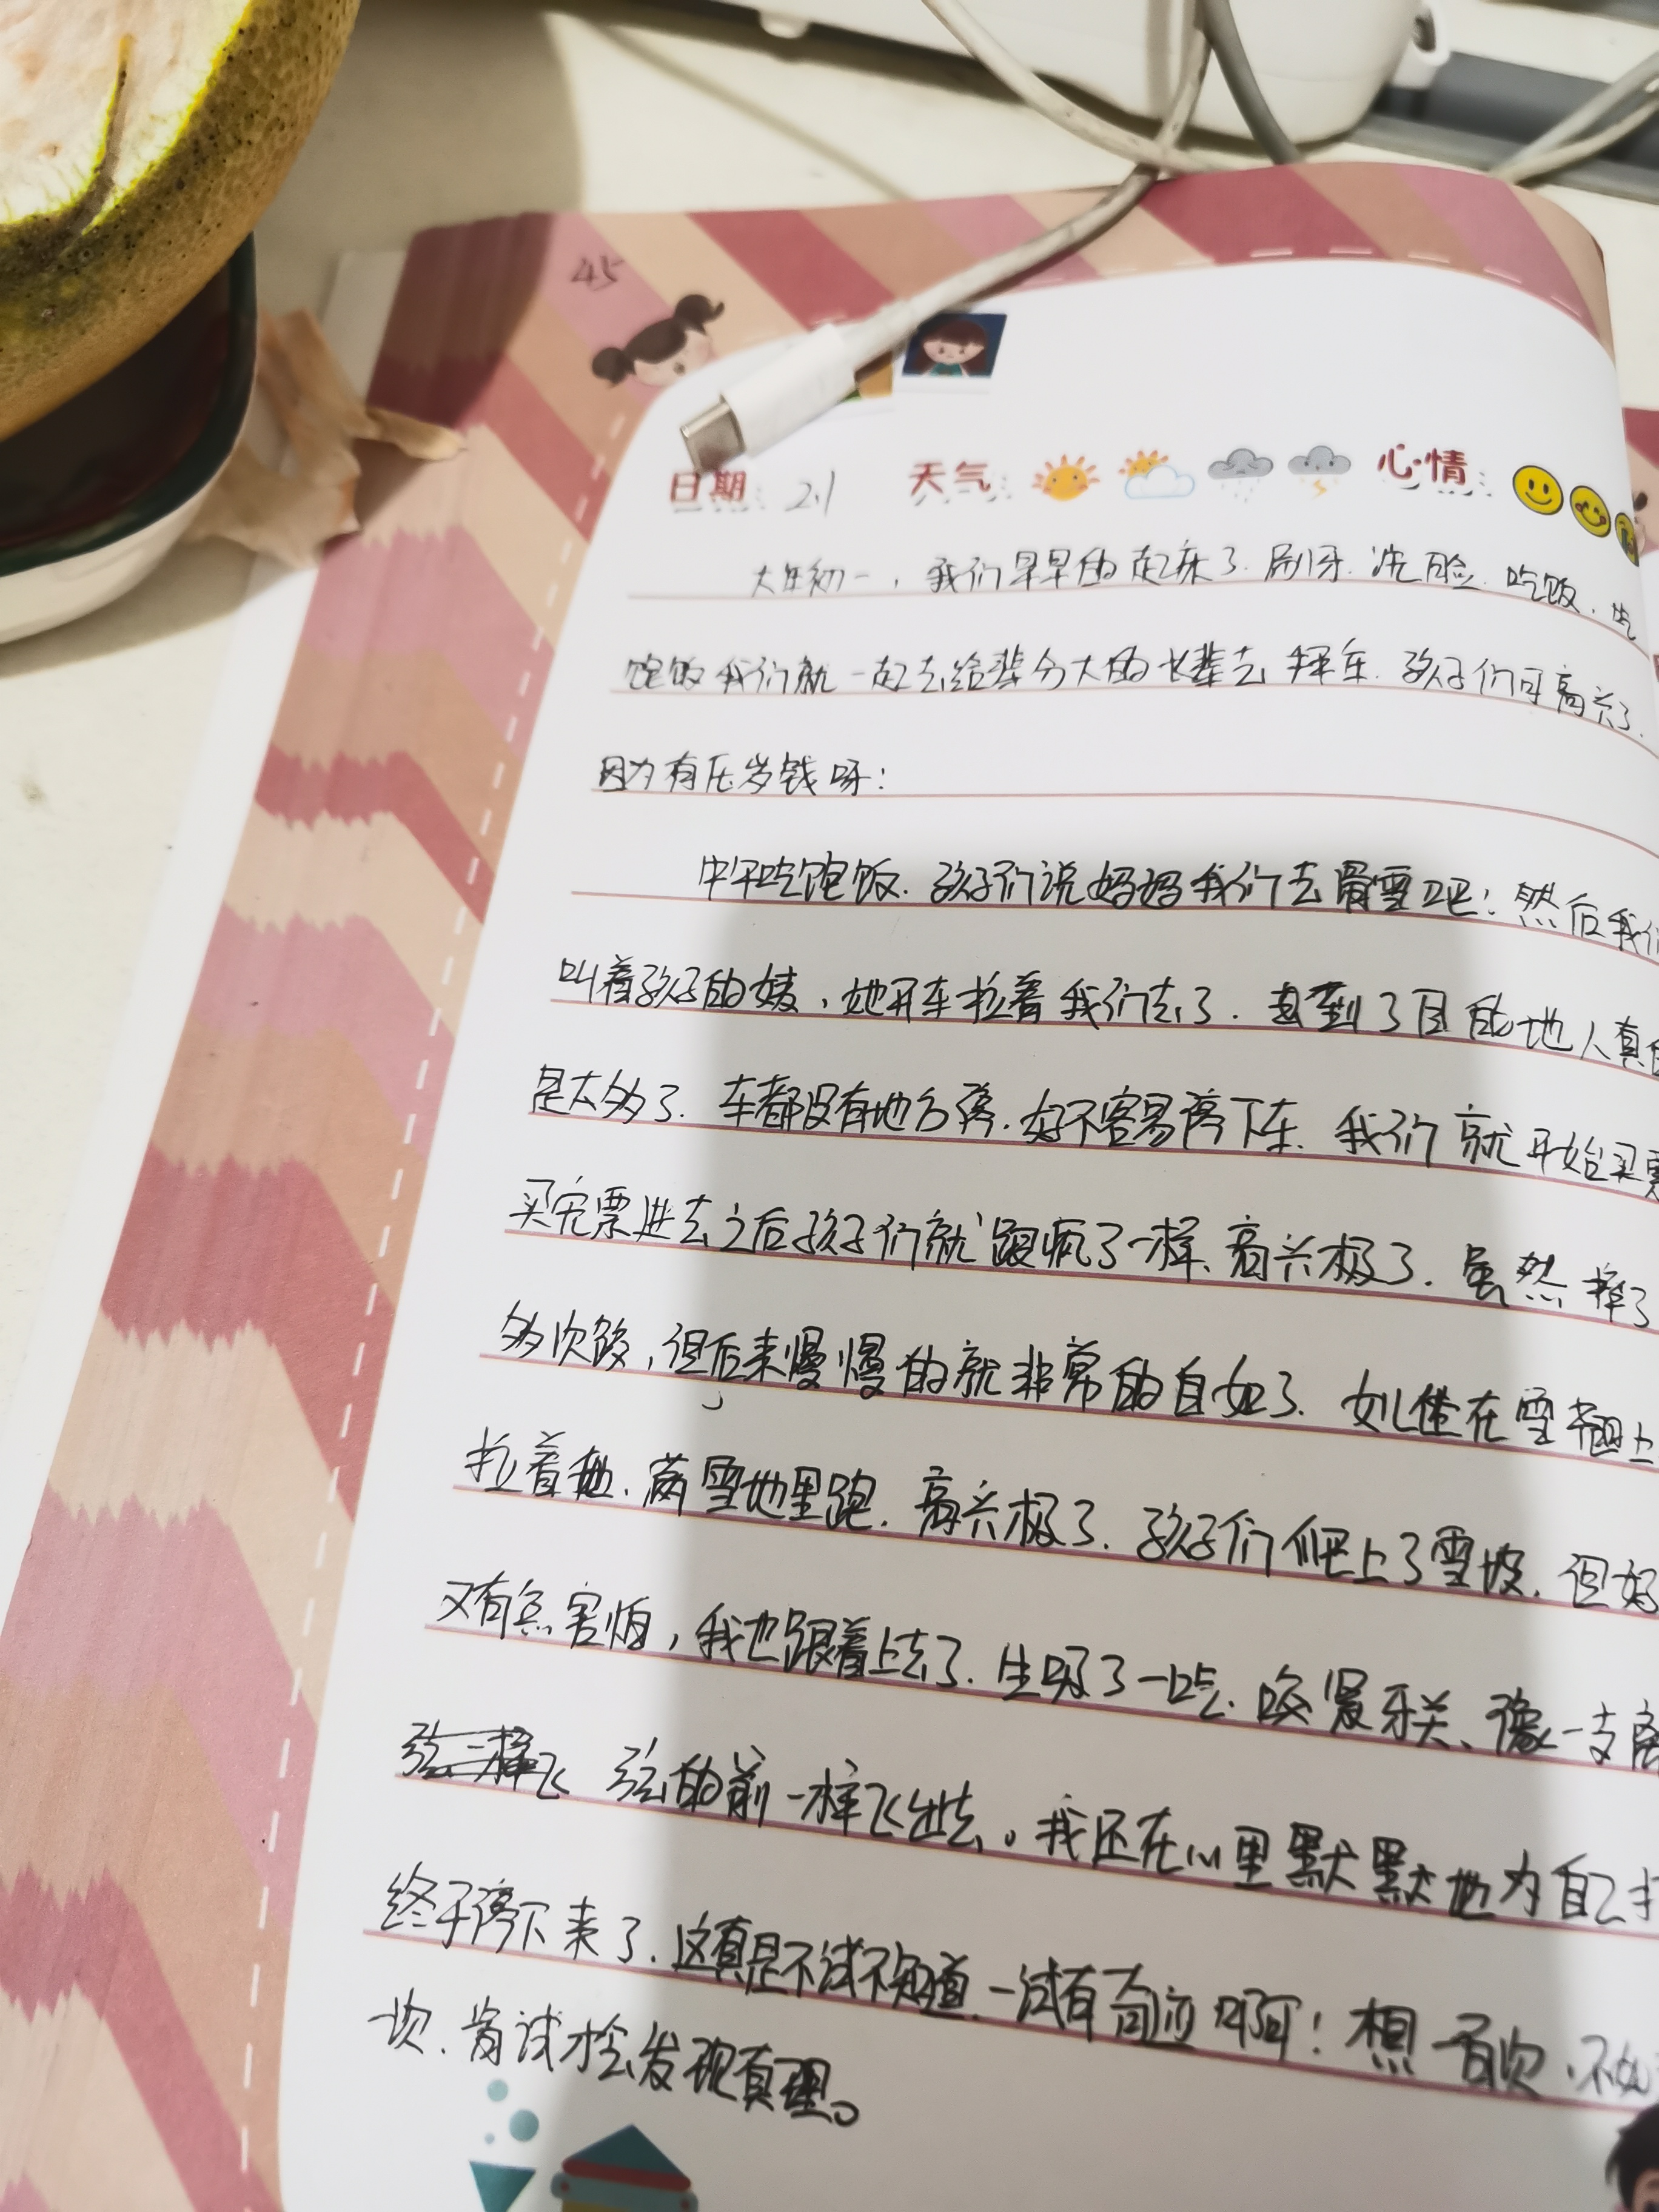 45
日期: 2.1 天气: 心情:
大年初一，我们早早的起床了.刷牙.洗脸.吃饭.吃
饱饭我们就一起去给辈分大的长辈去拜年.孩子们可高兴了.
因为有压岁钱呀！
中午吃饱饭.孩子们说妈妈我们去滑雪吧！然后我们
叫着孩子的姨，她开车拉着我们去了.直到了目的地人真的
是太多了.车都没有地方停.好不容易停下车.我们就开始买票
买完票进去之后孩子们就跟疯了一样、高兴极了.虽然摔了
多次跤，但后来慢慢的就非常的自如了.女儿坐在雪 上
拉着她.满雪地里跑.高兴极了.孩子们爬上了雪坡.但好
又有点害怕，我也跟着上去了.生吸了一口气.咬紧牙关、像一支离
弦的箭一样飞出去。我还在心里默默地为自己打
终于停下来了.这真是不试不知道.一试有奇迹啊！想一百次.不如
一次.肯试才会发现真理。